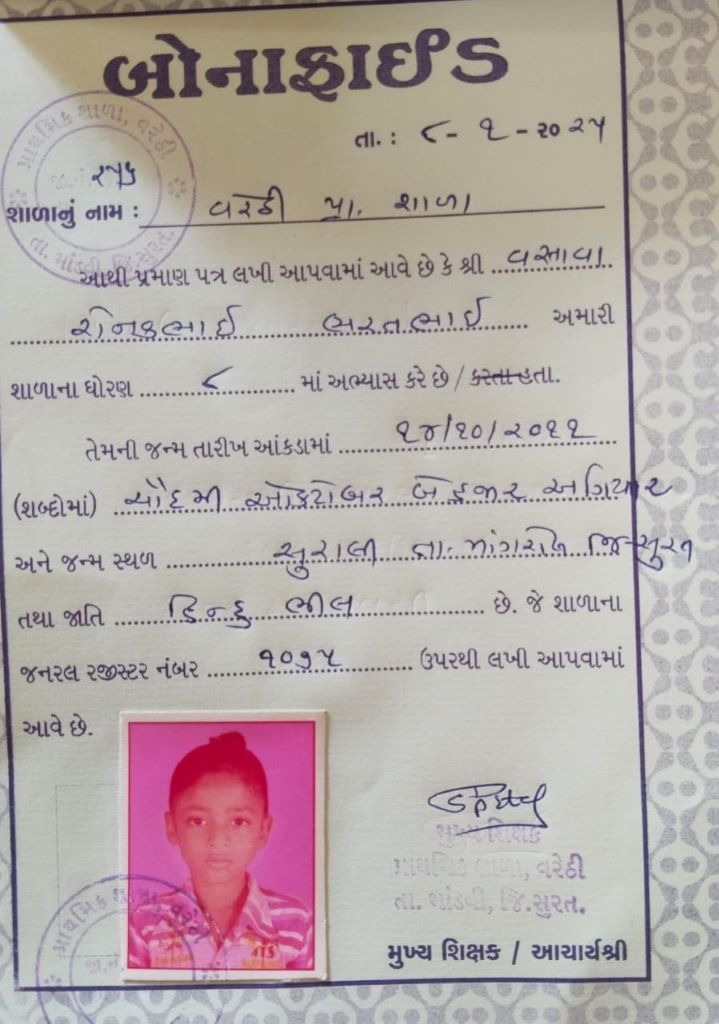 બોનાફાઈડ
તા. : ૮- ૧ - ૨૦૨૫
પ્રાથમિક શાળા, વરેઠી
જા.નં.
તા. માંડવી, જિ.સુરત.
શાળાનું નામ : વરેઠી પ્રા. શાળા
આથી પ્રમાણ પત્ર લખી આપવામાં આવે છે કે શ્રી વસાવા
રોનકભાઈ ભરતભાઈ અમારી
શાળાના ધોરણ ૮ માં અભ્યાસ કરે છે / કરતા હતા.
તેમની જન્મ તારીખ આંકડામાં ૧૪/૧૦/૨૦૧૧
(શબ્દોમાં) ચૌદમી ઓક્ટોબર બે હજાર અગિયાર
અને જન્મ સ્થળ સુરાલી તા. માંગરોળ જિ-સુરત
તથા જાતિ હિન્દુ ભીલ છે. જે શાળાના
જનરલ રજીસ્ટર નંબર ૧૦૭૫ ઉપરથી લખી આપવામાં
આવે છે.
મુખ્ય શિક્ષક
પ્રાથમિક શાળા, વરેઠી
તા. માંડવી, જિ.સુરત.
મુખ્ય શિક્ષક / આચાર્યશ્રી